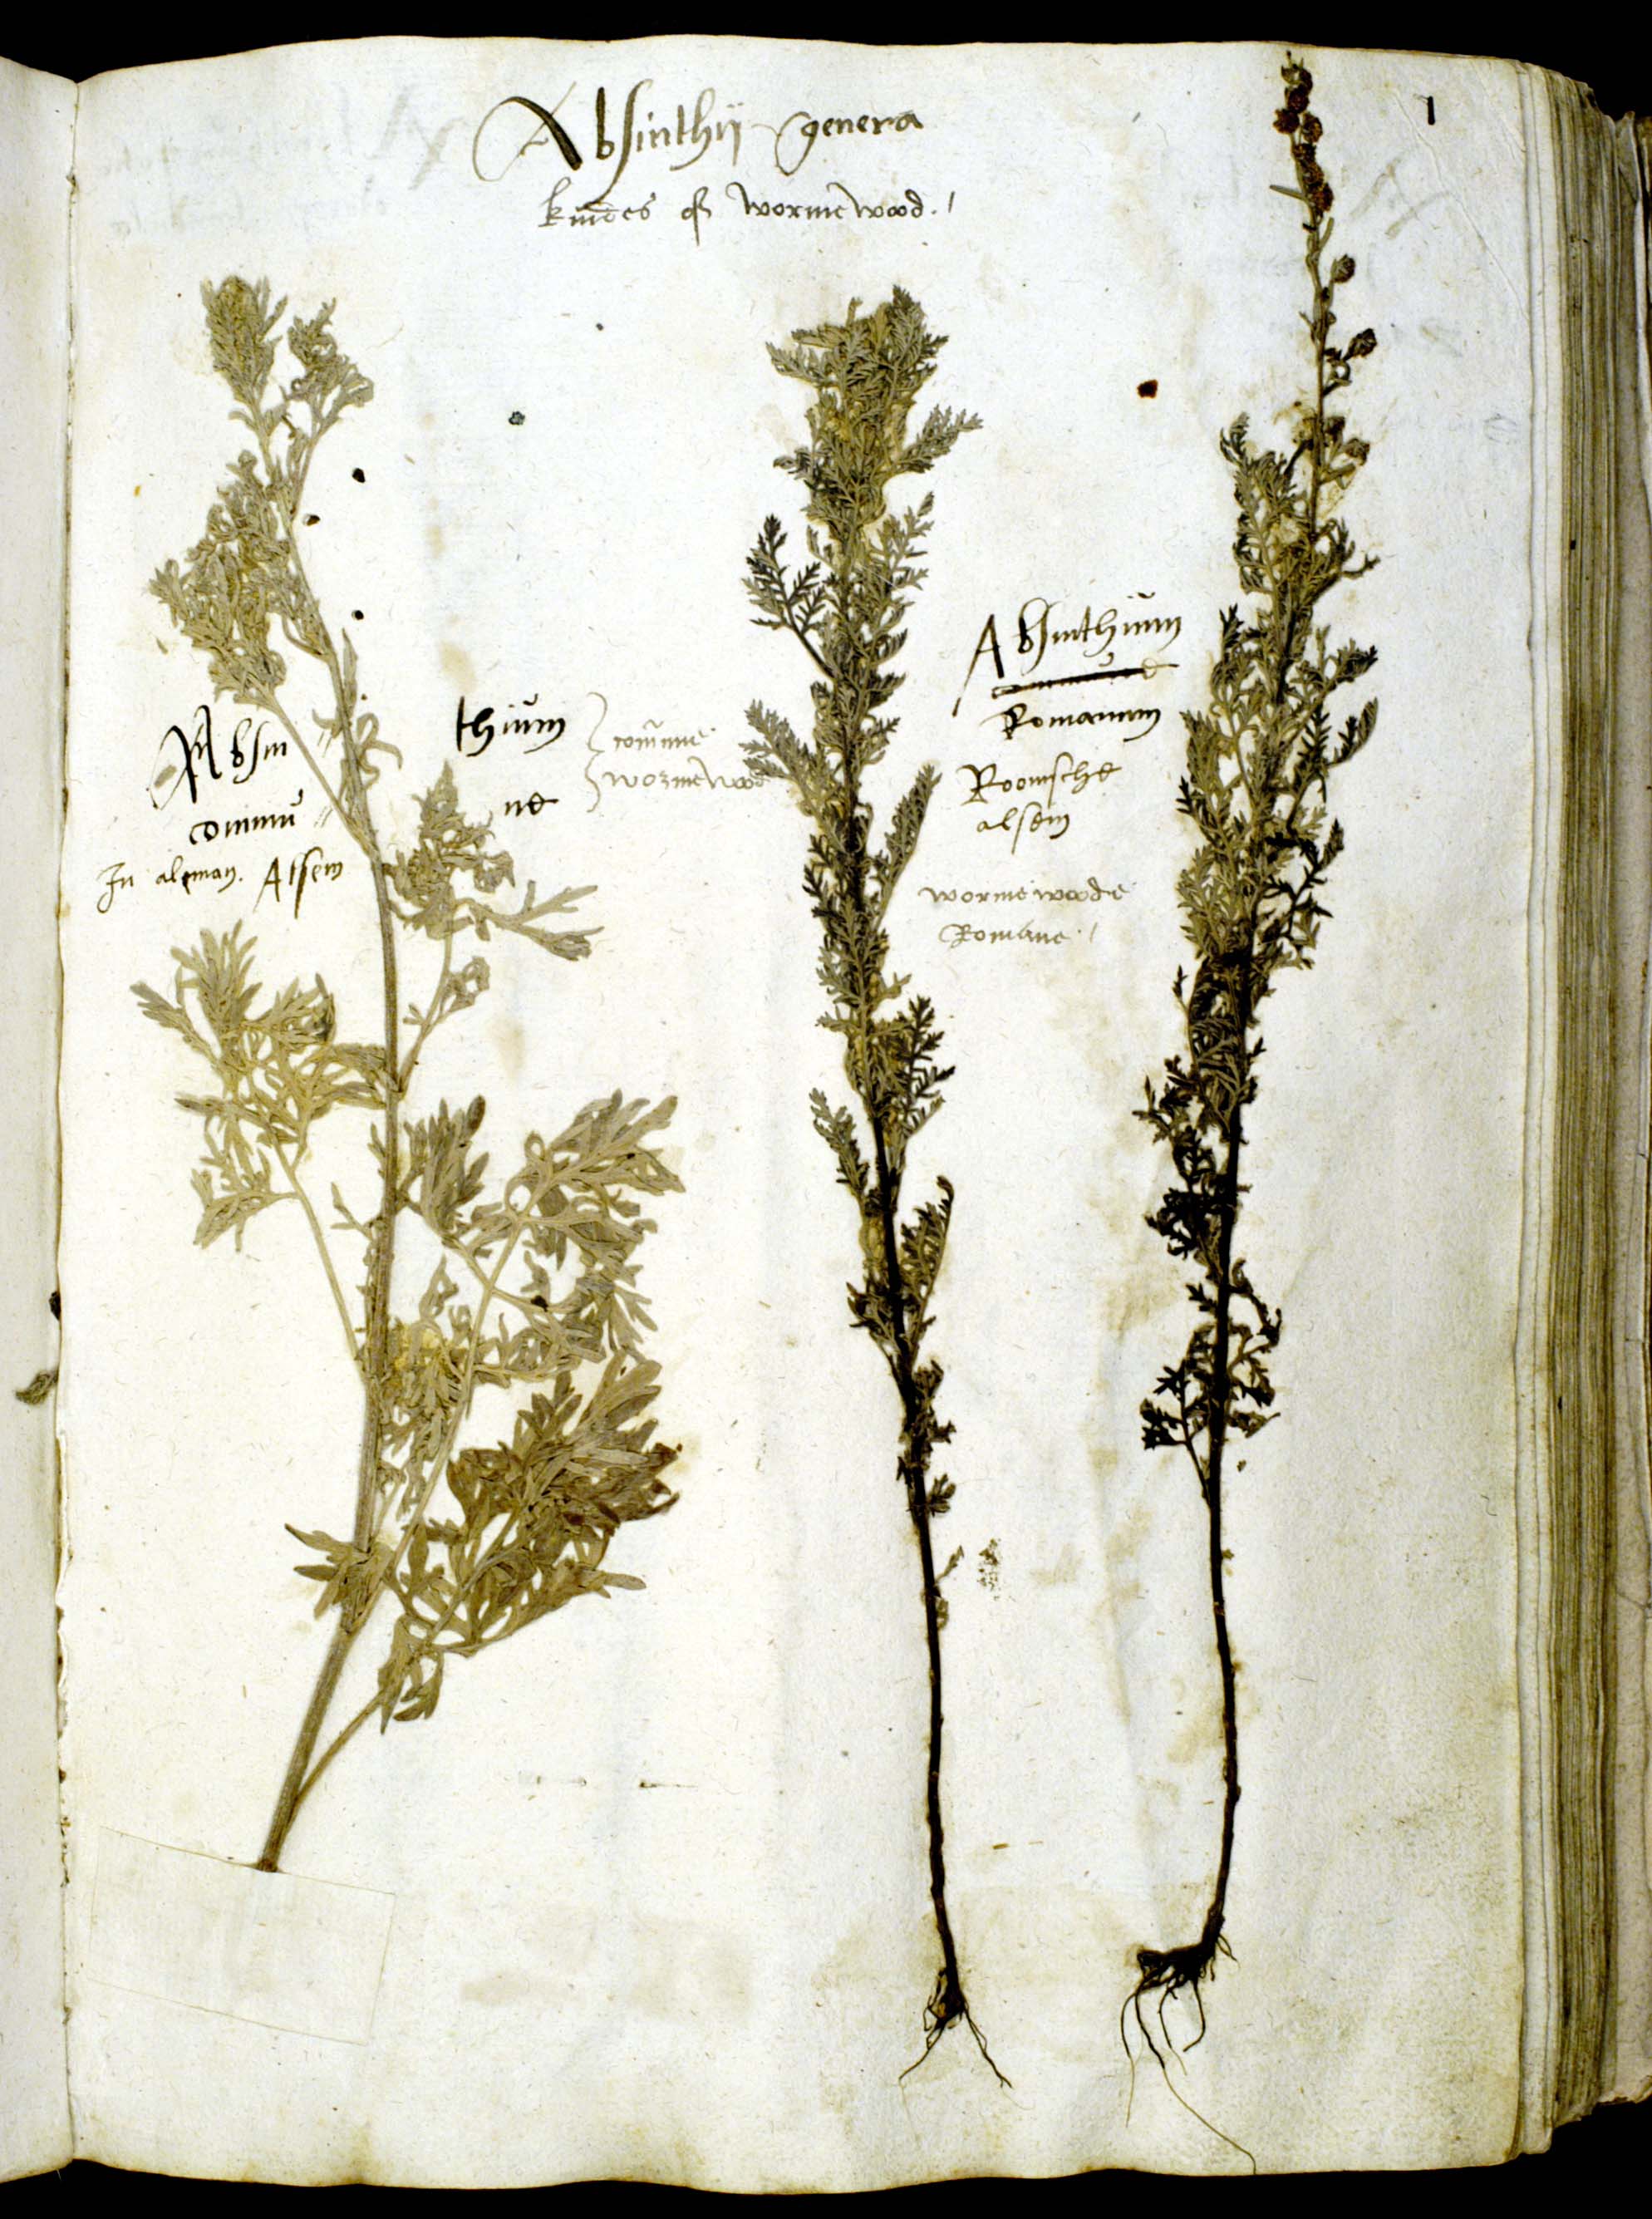 1
Absinthij genera
kindes of wormewood. /
Absin " thiŭm
commŭ " ne
In aleman. Alsem
com̃une
wormewood
Absinthiŭm
Romanum
Roomsche
alsem
wormewoode
Romane. /